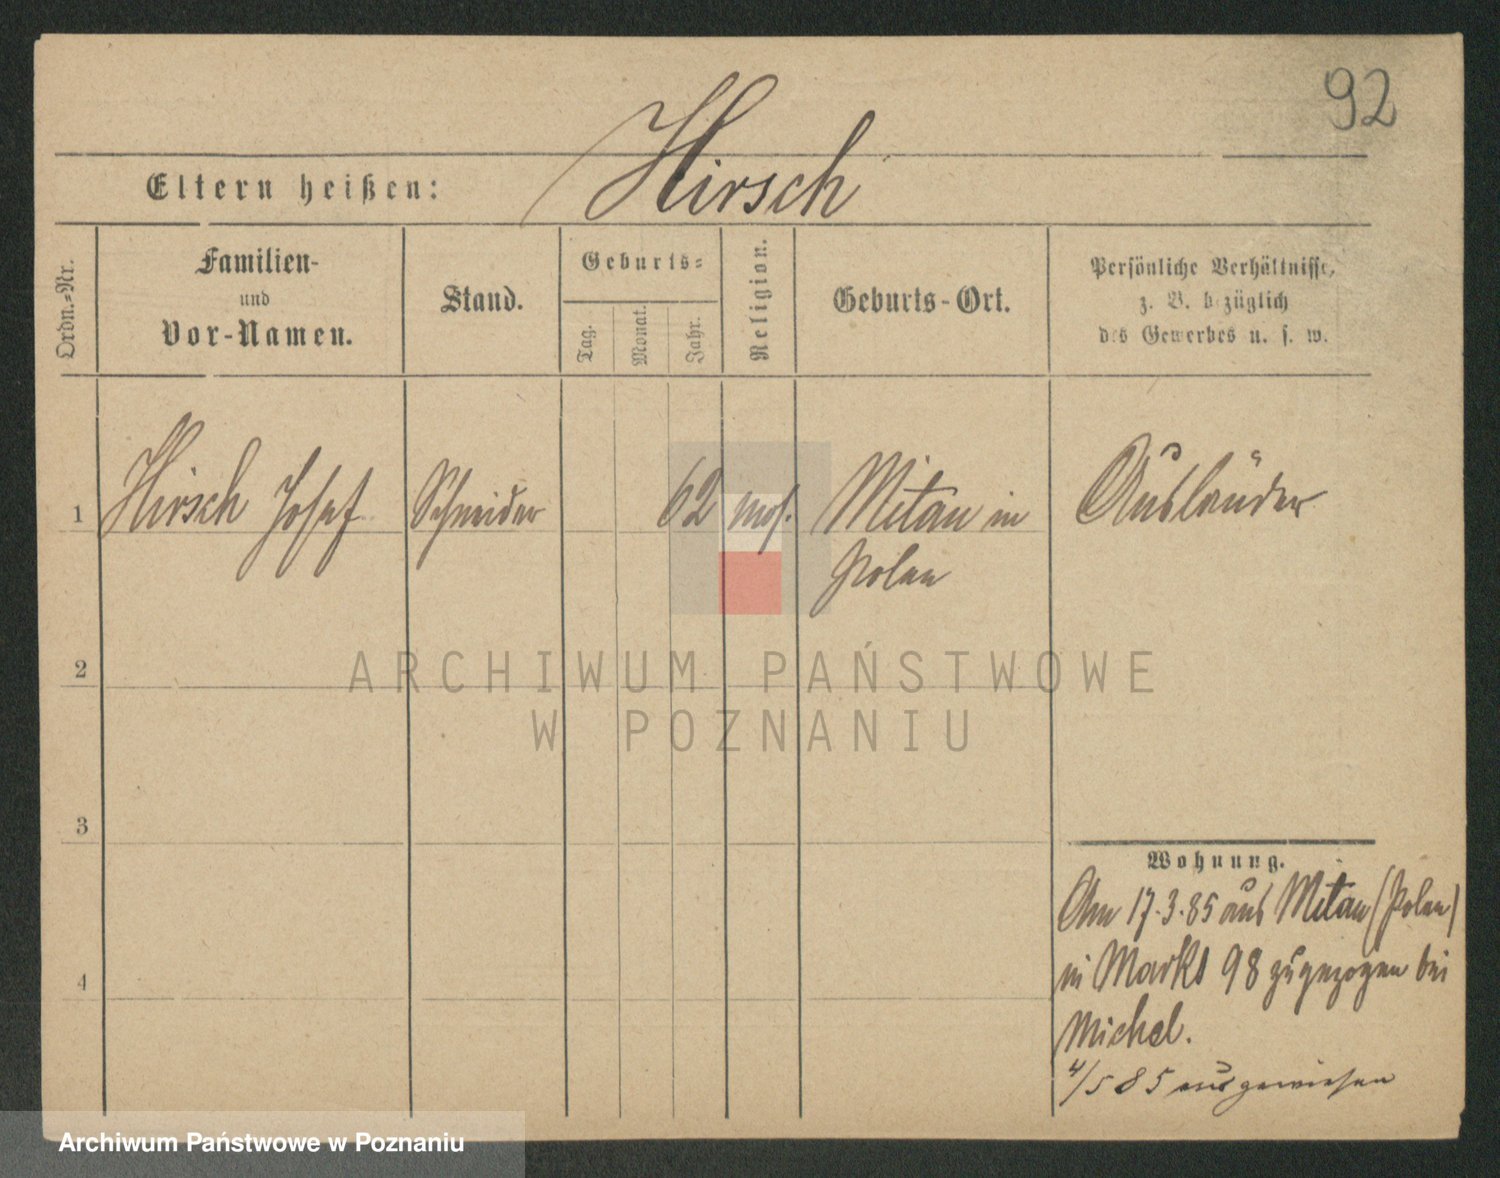 92
Hirsch
Eltern heißen:
Ordn.=Nr.
Familien-
und
Vor-Namen.
Stand.
Geburts=
Tag.
Monat.
Jahr.
Religion.
Geburts-Ort.
Persönliche Verhältnisse,
z. B. bezüglich
des Gewerbes u. s. w.
1 Hirsch Josef Schneider 62 mos. Mitau in Ausländer
Polen
2
3
4
Wohnung.
Am 17.3.85 aus Mitau (Polen)
in Markt 98 zugezogen bei
Michel.
4/5 85 ausgewiesen
ARCHIWUM PAŃSTWOWE
W POZNANIU
Archiwum Państwowe w Poznaniu